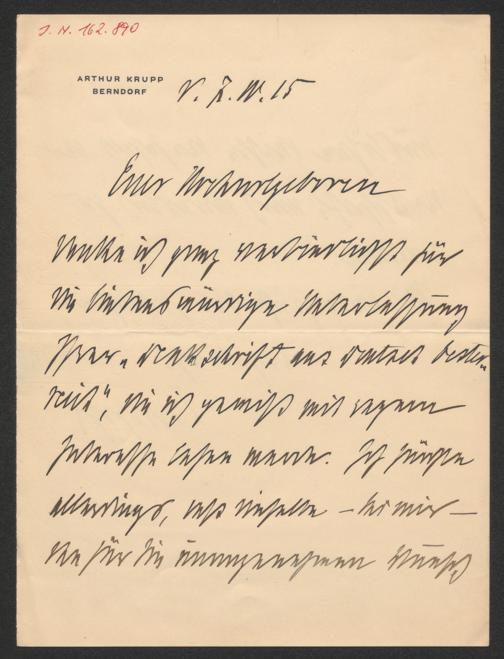 J. N. 162.890
ARTHUR KRUPP
BERNDORF
Euer Hochwohlgeboren
danke ich ganz verbindlichst für
die liebenswürdige Überlassung
Ihrer „Denkschrift aus Deutsch Oester-
reich", die ich gewiß mit regem
Interesse lesen werde. Ich fürchte
allerdings, daß dieselbe — bei mir —
den für Sie unangenehmen Wunsch